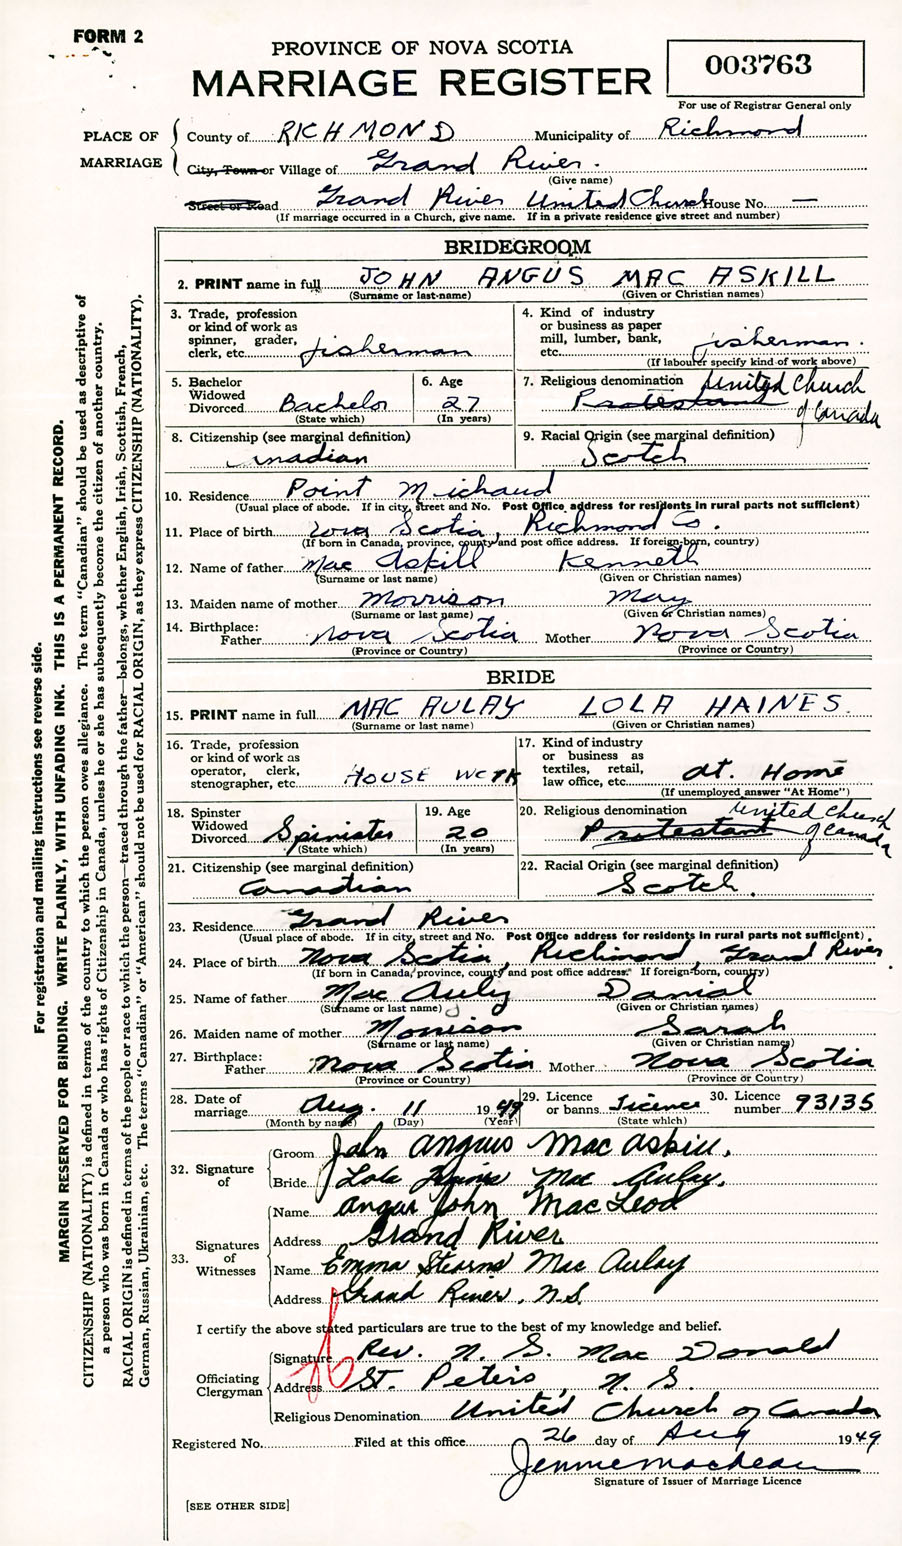 FORM 2
PROVINCE OF NOVA SCOTIA
MARRIAGE REGISTER
003763
For use of Registrar General only
PLACE OF MARRIAGE
County of RICHMOND Municipality of Richmond
City, Town or Village of Grand River.
(Give name)
Street or Road Grand River United Church House No. —
(If marriage occurred in a Church, give name. If in a private residence give street and number)
BRIDEGROOM
2. PRINT name in full JOHN ANGUS MAC ASKILL
(Surname or last-name) (Given or Christian names)
3. Trade, profession or kind of work as spinner, grader, clerk, etc. fisherman
4. Kind of industry or business as paper mill, lumber, bank, etc. fisherman.
(If labourer specify kind of work above)
5. Bachelor Widowed Divorced Bachelor
(State which)
6. Age 27
(In years)
7. Religious denomination Protestant United Church of Canada
8. Citizenship (see marginal definition)
Canadian
9. Racial Origin (see marginal definition)
Scotch
10. Residence Point Michaud
(Usual place of abode. If in city, street and No. Post Office address for residents in rural parts not sufficient)
11. Place of birth Nova Scotia, Richmond Co.
(If born in Canada, province, county and post office address. If foreign-born, country)
12. Name of father Mac Askill Kenneth
(Surname or last name) (Given or Christian names)
13. Maiden name of mother Morrison Mary
(Surname or last name) (Given or Christian names)
14. Birthplace: Father Nova Scotia Mother Nova Scotia
(Province or Country) (Province or Country)
BRIDE
15. PRINT name in full MAC AULAY LOLA HAINES.
(Surname or last name) (Given or Christian names)
16. Trade, profession or kind of work as operator, clerk, stenographer, etc. HOUSE WORK
17. Kind of industry or business as textiles, retail, law office, etc. At. Home
(If unemployed answer "At Home")
18. Spinster Widowed Divorced Spinister
(State which)
19. Age 20
(In years)
20. Religious denomination Protestant United Church of Canada
21. Citizenship (see marginal definition)
Canadian
22. Racial Origin (see marginal definition)
Scotch.
23. Residence Grand River
(Usual place of abode. If in city, street and No. Post Office address for residents in rural parts not sufficient)
24. Place of birth Nova Scotia, Richmond, Grand River.
(If born in Canada, province, county and post office address. If foreign-born, country)
25. Name of father Mac Auly Danial
(Surname or last name) (Given or Christian names)
26. Maiden name of mother Morrison Sarah
(Surname or last name) (Given or Christian names)
27. Birthplace: Father Nova Scotia Mother Nova Scotia
(Province or Country) (Province or Country)
28. Date of marriage Aug. 11 1949
(Month by name) (Day) (Year)
29. Licence or banns Licence
(State which)
30. Licence number 93135
32. Signature of
Groom John Angus Mac Askill.
Bride Lola Haines Mac Aulay.
33. Signatures of Witnesses
Name Angus John MacLeod
Address Grand River
Name Emma Stearns Mac Aulay
Address Grand River, N.S.
I certify the above stated particulars are true to the best of my knowledge and belief.
Officiating Clergyman
Signature Rev. N. S. Mac Donald
Address St. Peters, N. S.
Religious Denomination United Church of Canada
Registered No. Filed at this office 26 day of Aug 1949
Jennie MacLean
Signature of Issuer of Marriage Licence
[SEE OTHER SIDE]
For registration and mailing instructions see reverse side.
MARGIN RESERVED FOR BINDING. WRITE PLAINLY, WITH UNFADING INK. THIS IS A PERMANENT RECORD.
CITIZENSHIP (NATIONALITY) is defined in terms of the country to which the person owes allegiance. The term "Canadian" should be used as descriptive of
a person who was born in Canada or who has rights of Citizenship in Canada, unless he or she has subsequently become the citizen of another country.
RACIAL ORIGIN is defined in terms of the people or race to which the person—traced through the father—belongs, whether English, Irish, Scottish, French,
German, Russian, Ukrainian, etc. The terms "Canadian" or "American" should not be used for RACIAL ORIGIN, as they express CITIZENSHIP (NATIONALITY).